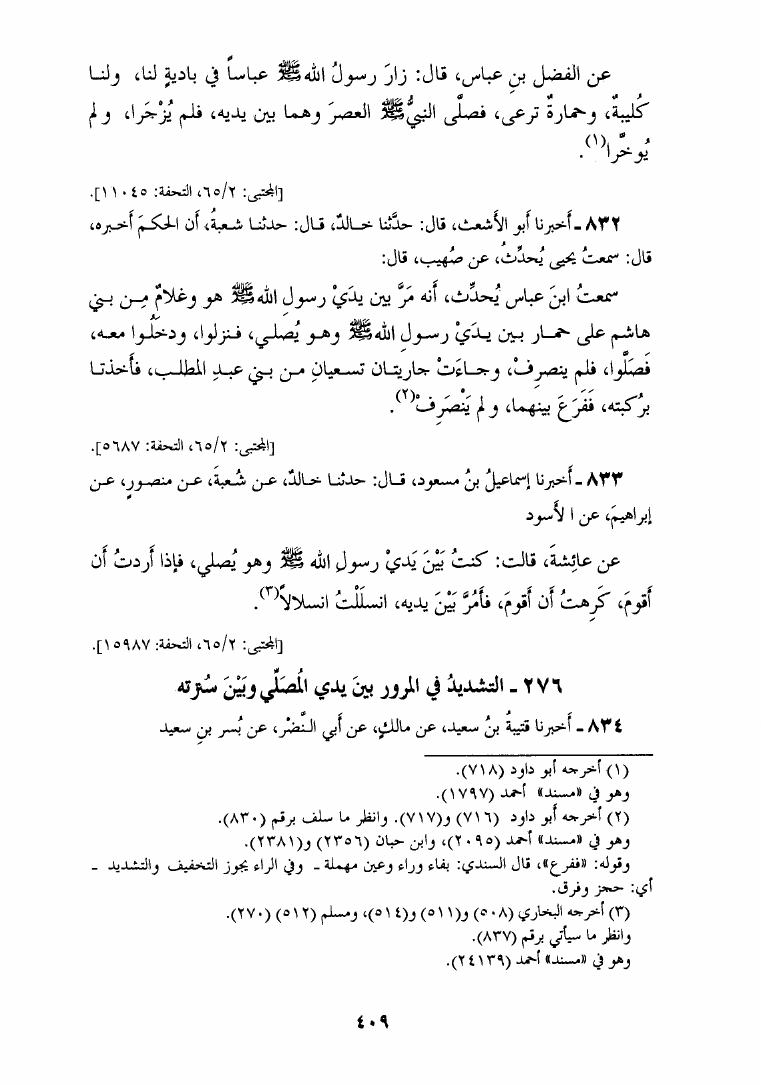 عن الفضل بنِ عباس، قال: زارَ رسولُ الله ﷺ عباساً في باديةٍ لنا، ولنا
كُليبةٌ، وحمارةٌ ترعى، فصلَّى النبيُّ ﷺ العصرَ وهما بين يديه، فلم يُزْجَرا، ولم
يُوخَّرا(١).
[المجتبى: ٦٥/٢، التحفة: ١١٠٤٥].
٨٣٢ ـ أخبرنا أبو الأشعث، قال: حدَّثنا خالدٌ، قال: حدثنا شعبةُ، أن الحكمَ أخبره،
قال: سمعتُ يحيى يُحدِّثُ، عن صُهيب، قال:
سمعتُ ابنَ عباس يُحدِّث، أنه مَرَّ بين يدَيْ رسولِ الله ﷺ هو وغلامٌ مِن بني
هاشم على حمار بين يدَيْ رسولِ الله ﷺ وهو يُصلي، فنزلوا، ودخلُوا معه،
فَصَلَّوا، فلم ينصرِفْ، وجاءَتْ جاريتان تسعيانِ من بني عبدِ المطلب، فأخذتا
برُكبته، فَفَرَعَ بينهما، ولم يَنْصَرِفْ(٢).
[المجتبى: ٦٥/٢، التحفة: ٥٦٨٧].
٨٣٣ ـ أخبرنا إسماعيلُ بنُ مسعود، قال: حدثنا خالدٌ، عن شُعبةَ، عن منصورٍ، عن
إبراهيمَ، عن الأسود
عن عائِشةَ، قالت: كنتُ بَيْنَ يَديْ رسولِ الله ﷺ وهو يُصلي، فإذا أردتُ أن
أقومَ، كَرِهتُ أن أقومَ، فأمُرَّ بَيْنَ يديه، انسلَلْتُ انسلالاً(٣).
[المجتبى: ٦٥/٢، التحفة: ١٥٩٨٧].
٢٧٦ ـ التشديدُ في المرور بينَ يدي المُصَلِّي وبَيْنَ سُترته
٨٣٤ ـ أخبرنا قتيبةُ بنُ سعيد، عن مالكٍ، عن أبي النَّضْر، عن بُسر بنِ سعيد
(١) أخرجه أبو داود (٧١٨).
وهو في «مسند» أحمد (١٧٩٧).
(٢) أخرجه أبو داود (٧١٦) و(٧١٧). وانظر ما سلف برقم (٨٣٠).
وهو في «مسند» أحمد (٢٠٩٥)، وابن حبان (٢٣٥٦) و(٢٣٨١).
وقوله: «ففرع»، قال السندي: بفاء وراء وعين مهملة ـ وفي الراء يجوز التخفيف والتشديد ـ
أي: حجز وفرق.
(٣) أخرجه البخاري (٥٠٨) و(٥١١) و(٥١٤)، ومسلم (٥١٢) (٢٧٠).
وانظر ما سيأتي برقم (٨٣٧).
وهو في «مسند» أحمد (٢٤١٣٩).
٤٠٩